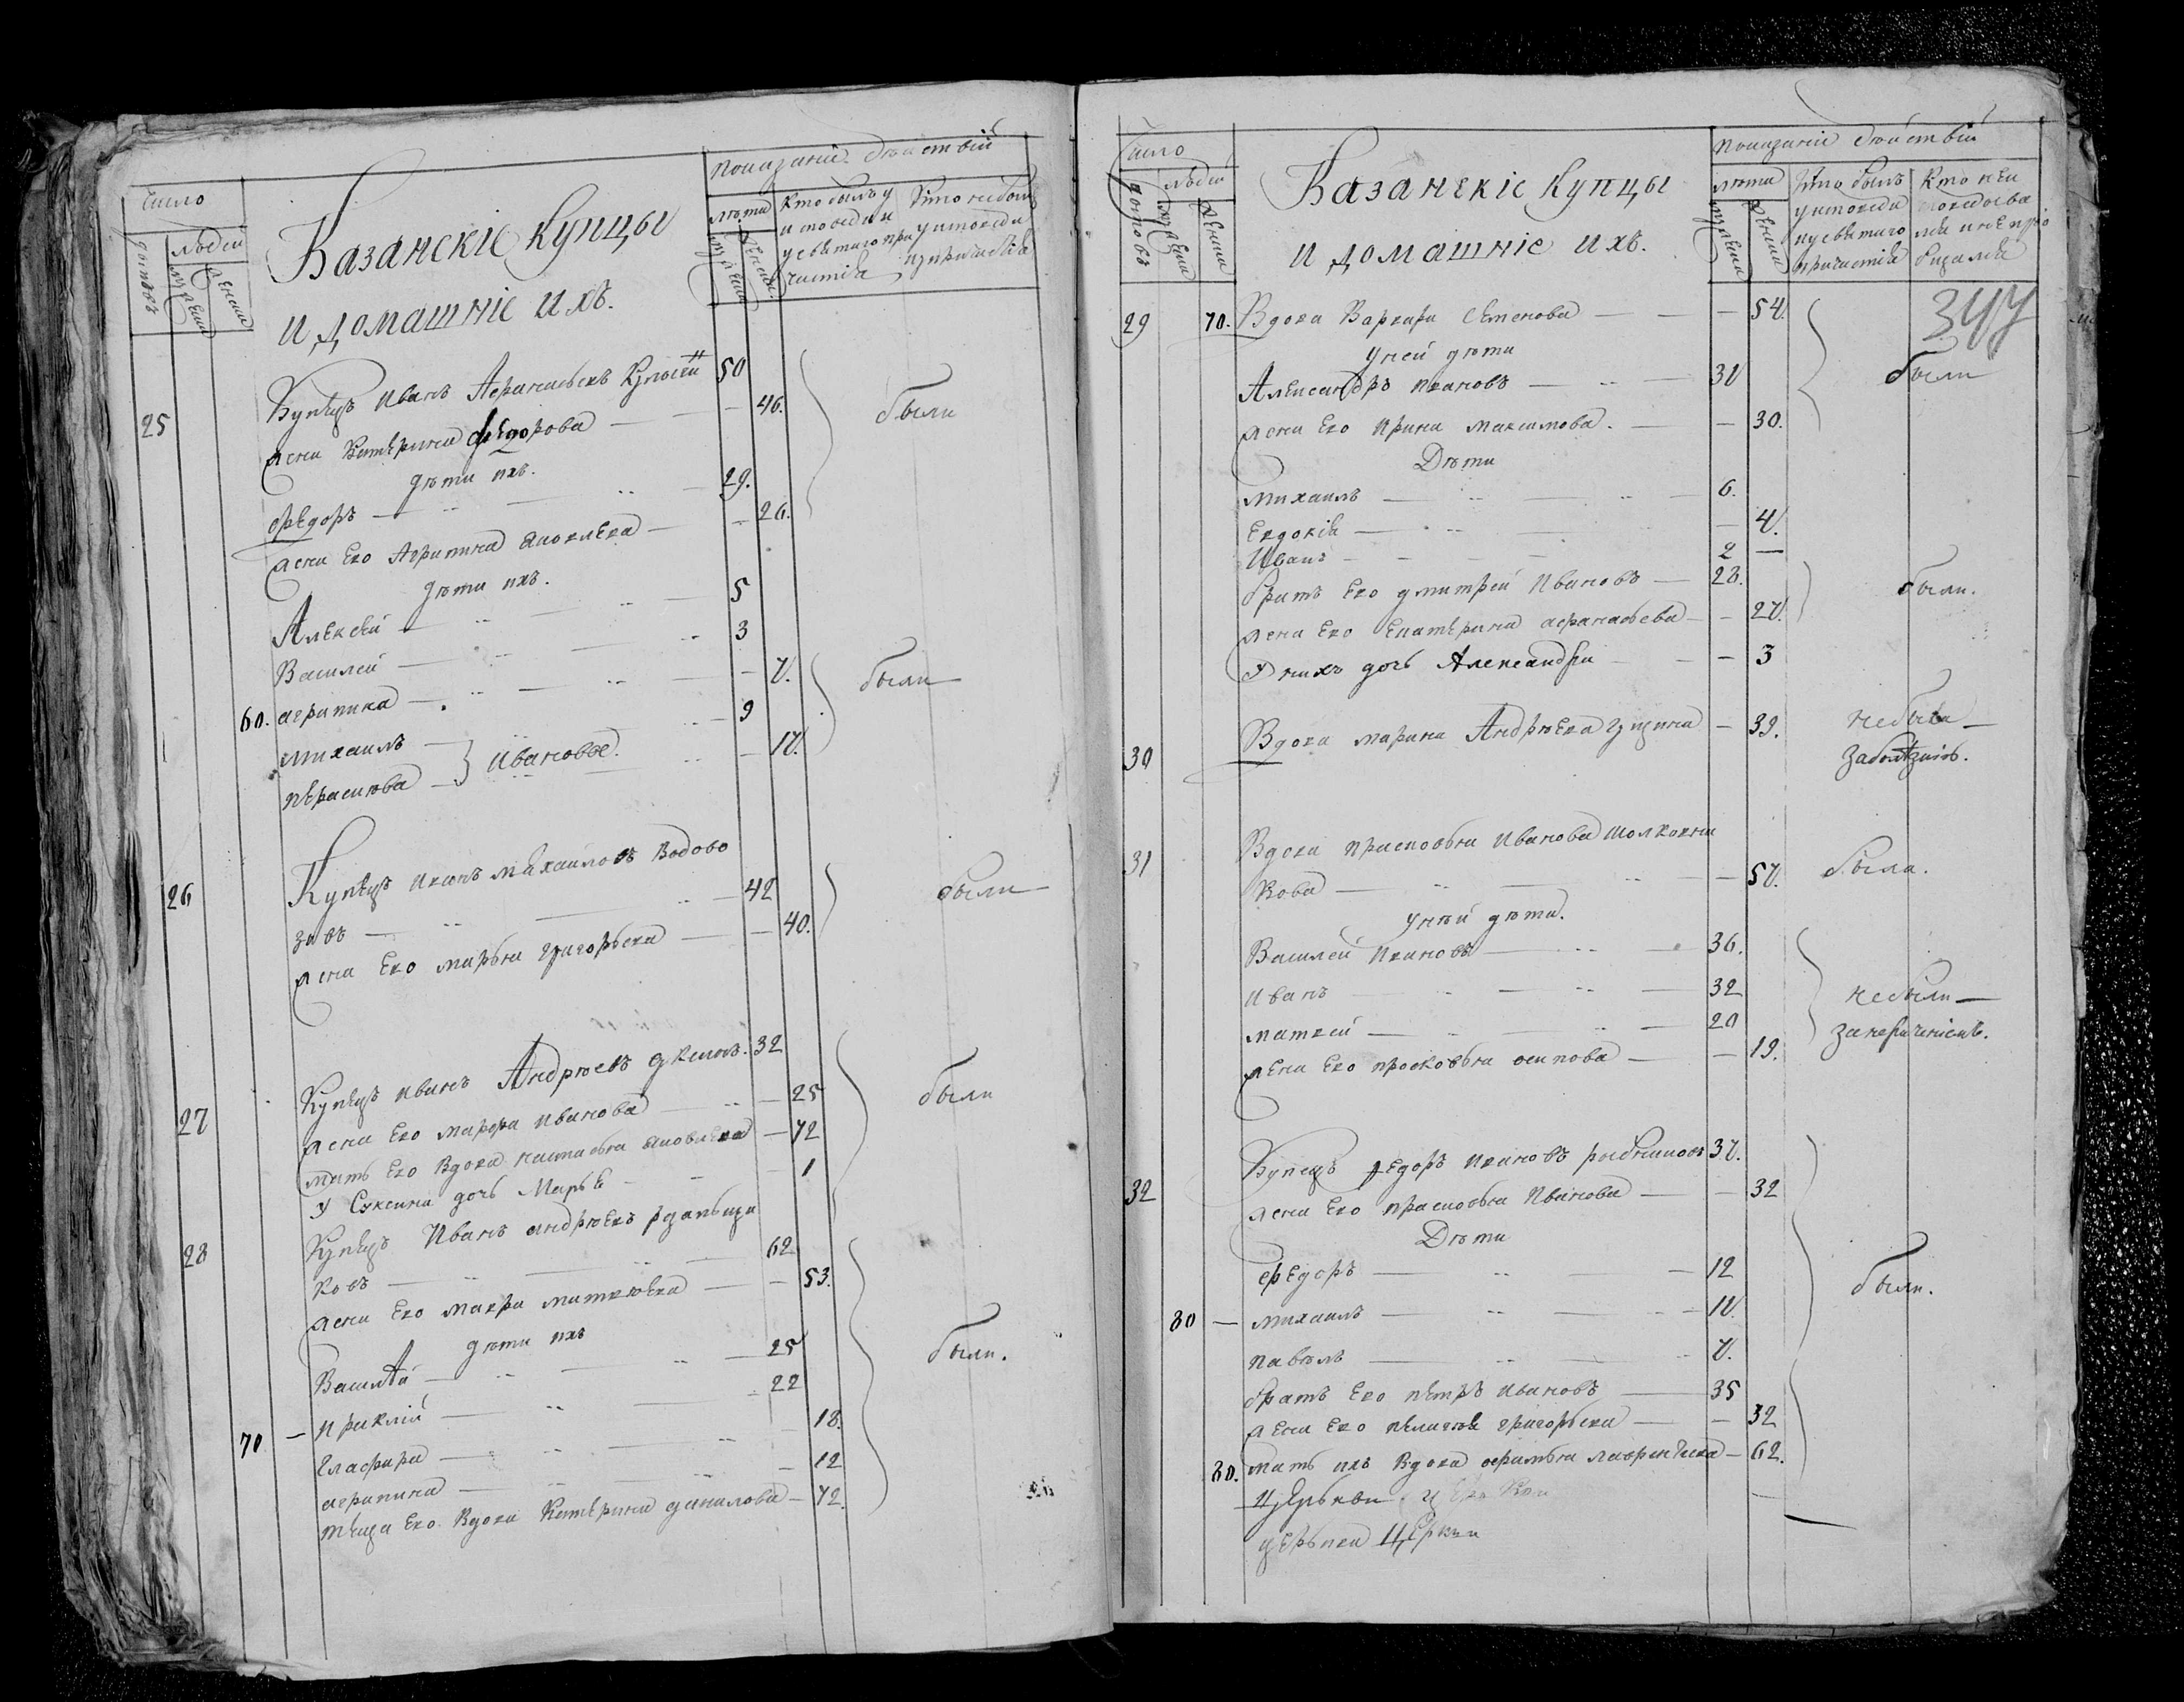 Число
Показаніе действій
домовъ
людей
муж: пола
женска
Казанскіе купцы
и домашніе ихъ.
лѣта
муж: пола
женска
Кто былъ у
исповеди и
у святаго при
частія
Кто небылъ
у исповеди
и у причастія
25 Купецъ Иванъ Афанасьевъ 50
жена Катерина Федорова — — 46. были
дѣти ихъ.
Федоръ — — 29.
жена Его Агрипина Яковлева — — 26.
дѣти ихъ.
Алексей — — 5
Василей — — 3
60. агрипина — — 7. были
михаилъ — 9
парасковья — Ивановы. — 17.
26 Купецъ Иванъ михаиловъ Водово
зовъ — — 42 были
жена Его марья григорьева — — 40.
27 Купецъ Иванъ Андрѣевъ 32
жена Его марфа Иванова — — 25 были
мать Его Вдова настасья яковлева — 72
У дочь Марье — 1
28 Купецъ Иванъ андрѣевъ
ковъ — — 62
жена Его мавра матвѣева — — 53.
дѣти ихъ
Василей — — 25 были.
70 — Ираклій — — 22
Глафира — — 18.
агрипина — — 12
теща Его Вдова Катерина данилова — 72.
Число
Показаніе действій
домовъ
людей
муж: пола
женска
Казанскіе купцы
и домашніе ихъ.
лѣта
муж: пола
женска
Кто былъ
у исповеди
и у святаго
причастія
Кто неи
споведова
лся и непріо
бщался
344
29 70. Вдова Варвара Семенова — — 54.
У ней дѣти
Александръ Ивановъ — — 31 были
жена Его Ирина максимова. — — 30.
Дѣти
михаилъ — — 6.
Евдокія — — 4.
Иванъ — — 2 —
братъ Его дмитрей Ивановъ — 28. были.
жена Его Екатерина афанасьева — — 27.
У нихъ дочь Александра — — 3
30 Вдова марина Андрѣева — 39. небыла —
заболѣзнію.
31 Вдова прасковья Иванова шолковни
кова — — 57. была.
У ней дѣти.
Василей Ивановъ — — 36.
Иванъ — — 32 небыли —
матвей — — 20 занебытіемъ.
жена Его просковья осипова — — 19.
32 Купецъ федоръ Ивановъ рыбниковъ 37.
жена Его прасковья Иванова — — 32
Дѣти
федоръ — — 12
80 — михаилъ — — 11. были.
павелъ — — 7.
братъ Его петръ Ивановъ — 35
жена Его пелагея григорьева — — 32
80. мать ихъ Вдова лаврентьева — 62.
Церькви
церькви Церкви